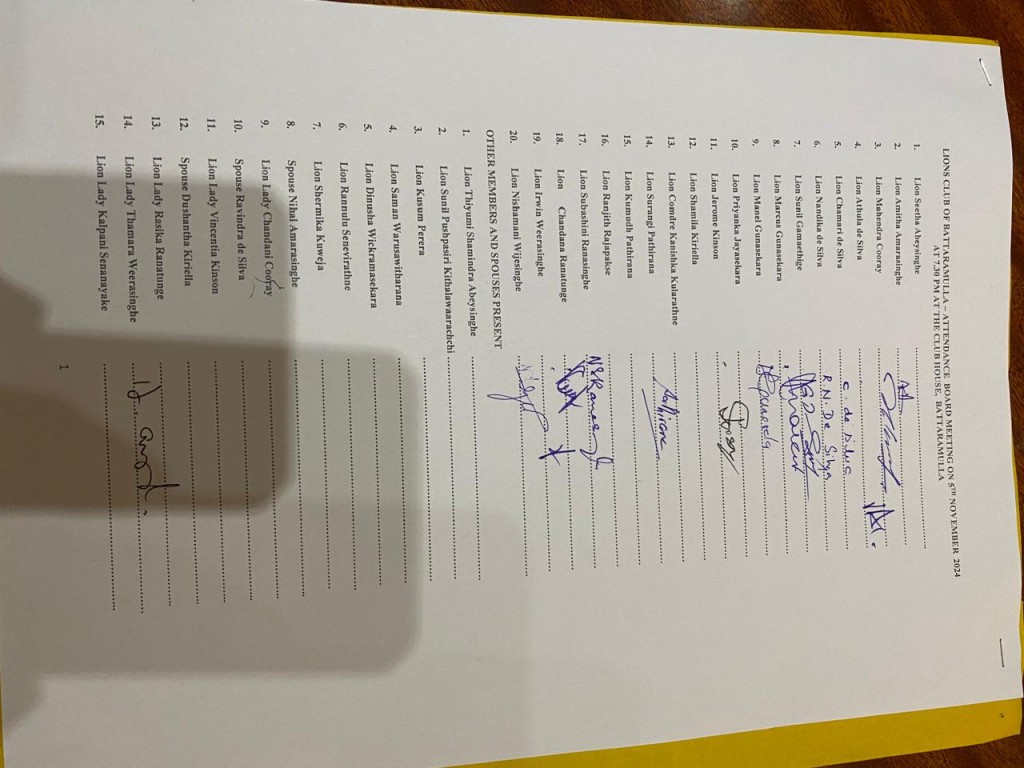 LIONS CLUB OF BATTARAMULLA – ATTENDANCE BOARD MEETING ON 5TH NOVEMBER 2024
AT 7.30 PM AT THE CLUB HOUSE, BATTARAMULLA
1. Lion Seetha Abeysinghe
2. Lion Amitha Amarasinghe
3. Lion Mahendra Cooray
4. Lion Athula de Silva
5. Lion Chamari de Silva C. de Silva
6. Lion Nandika de Silva R.N. De Silva
7. Lion Sunil Gamaethige
8. Lion Marcus Gunasekara
9. Lion Manel Gunasekara
10. Lion Priyanka Jayasekara
11. Lion Jerome Kinson
12. Lion Shamila Kiriella
13. Lion Comdre Kanishka Kularathne
14. Lion Surangi Pathirana
15. Lion Kumudh Pathirana
16. Lion Ranjith Rajapakse
17. Lion Subashini Ranasinghe
18. Lion Chandana Ranatunge
19. Lion Irwin Weerasinghe
20. Lion Nishamani Wijesinghe
OTHER MEMBERS AND SPOUSES PRESENT
1. Lion Thiyumi Shamindra Abeysinghe
2. Lion Sunil Pushpasiri Kithalawaarachchi
3. Lion Kusum Perera
4. Lion Saman Warusawitharana
5. Lion Dinusha Wickramasekara
6. Lion Rannulu Senevirathne
7. Lion Shermika Kuweja
8. Spouse Nihal Amarasinghe
9. Lion Lady Chandani Cooray
10. Spouse Ravindra de Silva
11. Lion Lady Vincentia Kinson
12. Spouse Dushantha Kiriella
13. Lion Lady Rasika Ranatunge
14. Lion Lady Thamara Weerasinghe
15. Lion Lady Kalpani Senanayake
1